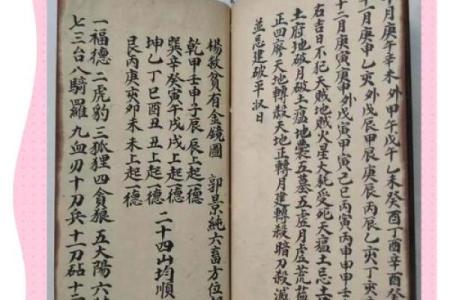 月庚午辛未 外甲午戊午乙未癸酉丁酉辛酉
一月庚申乙亥外戊辰甲辰庚辰丙辰乙亥丁亥
十二月庚寅庚申外戊寅甲寅己巳丙寅丙申甲申
右吉日不犯天賊地賊火星大耗受死天瘟土忌土
土府地破月破土瘟地囊五墓五虛月虛荒蕪
正四廢天地轉殺天地正轉月建轉殺暗刀殺滅
並忌建破平收日
楊救貧有金鏡圖 郭景純六畜方位
乾甲壬申子辰辰上起一德
巽辛癸寅午戌戌上起一德
坤乙丁巳酉丑丑上起一德
艮丙庚亥卯未未上起一德
二十四山均順
一福德二虎豹三狐狸四貪狼五太陽六
七三台八騎羅九血刃十刀兵十一刀砧十